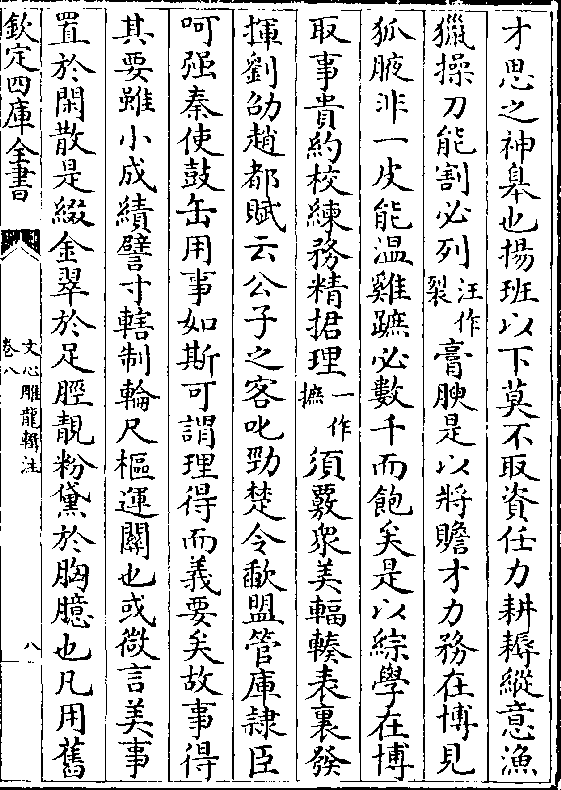 才思之神皋也揚班以下莫不取資任力耕耨縱意漁
獵操刀能割必列汪作裂膏腴是以將贍才力務在博見
狐腋非一皮能溫雞蹠必數千而飽矣是以綜學在博
取事貴約校練務精捃理一作摭須覈衆美輻輳表裏發
揮劉劭趙都賦云公子之客叱勁楚令歃盟管庫隸臣
呵强秦使鼓缶用事如斯可謂理得而義要矣故事得
其要雖小成績譬寸轄制輪尺樞運關也或微言美事
置於閑散是綴金翠於足脛靚粉黛於胸臆也凡用舊
欽定四庫全書
文心雕龍輯注
卷八
八